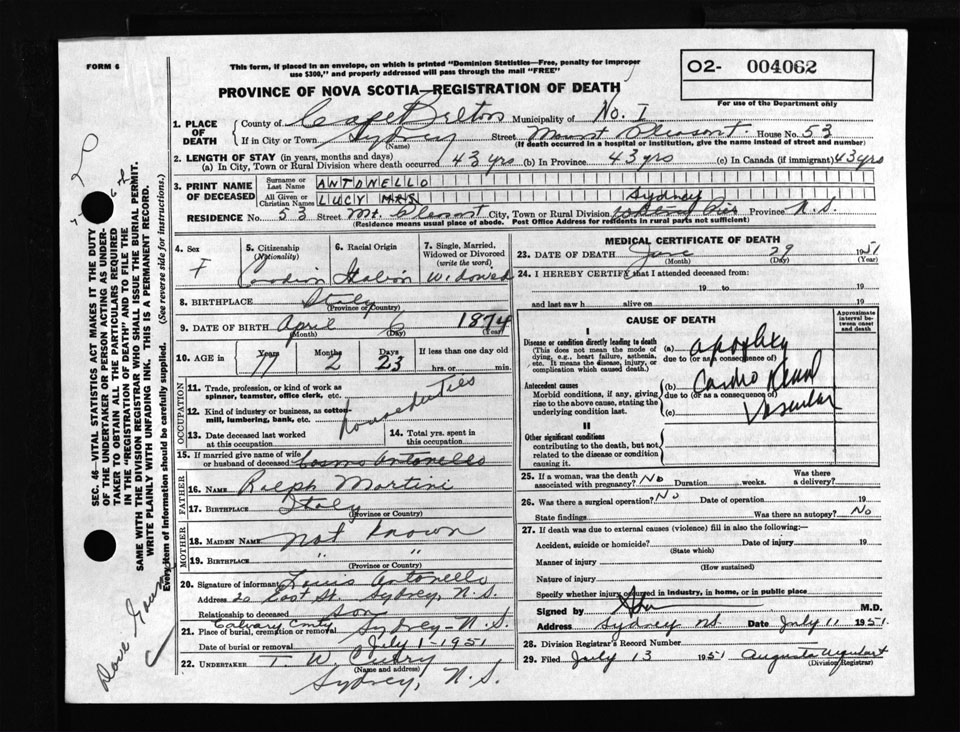 FORM 6
This form, if placed in an envelope, on which is printed "Dominion Statistics—Free, penalty for improper
use $300," and properly addressed will pass through the mail "FREE"
02- 004062
For use of the Department only
PROVINCE OF NOVA SCOTIA—REGISTRATION OF DEATH
1. PLACE OF DEATH County of Cape Breton Municipality of No. I
If in City or Town Sydney (Name) Street Mount Pleasant. House No. 53
(If death occurred in a hospital or institution, give the name instead of street and number)
2. LENGTH OF STAY (in years, months and days)
(a) In City, Town or Rural Division where death occurred 43 yrs (b) In Province 43 yrs (c) In Canada (if immigrant) 43 yrs
3. PRINT NAME OF DECEASED Surname or Last Name ANTONELLO
All Given or Christian Names LUCY MRS
RESIDENCE No. 53 Street Mt. Plesant City, Town or Rural Division Sydney Province N.S.
(Residence means usual place of abode. Post Office Address for residents in rural parts not sufficient)
4. Sex F
5. Citizenship (Nationality) Canadian
6. Racial Origin Italian
7. Single, Married, Widowed or Divorced (write the word) Widowed
8. BIRTHPLACE Italy (Province or Country)
9. DATE OF BIRTH April (Month) 6 (Day) 1874 (Year)
10. AGE in Years 77 Months 2 Days 23 If less than one day old hrs. or min.
OCCUPATION
11. Trade, profession, or kind of work as spinner, teamster, office clerk, etc.
12. Kind of industry or business, as cotton-mill, lumbering, bank, etc.
house duties
13. Date deceased last worked at this occupation
14. Total yrs. spent in this occupation
15. If married give name of wife or husband of deceased Cosmo Antonello
FATHER
16. NAME Ralph Martini
17. BIRTHPLACE Italy (Province or Country)
MOTHER
18. MAIDEN NAME not known
19. BIRTHPLACE " " (Province or Country)
20. Signature of informant Louis Antonello
Address 20 East St. Sydney, N.S.
Relationship to deceased Son
21. Place of burial, cremation or removal Calvary Cmty Sydney- N.S.
Date of burial or removal July 1- 1951
22. UNDERTAKER T. W. Curry (Name and address)
Sydney, N.S.
MEDICAL CERTIFICATE OF DEATH
23. DATE OF DEATH June (Month) 29 (Day) 1951 (Year)
24. I HEREBY CERTIFY that I attended deceased from:
19 to 19
and last saw h alive on 19
CAUSE OF DEATH
Approximate interval between onset and death
I
Disease or condition directly leading to death
(This does not mean the mode of dying, e.g., heart failure, asthenia, etc. It means the disease, injury, or complication which caused death.)
(a) apoplexy
due to (or as a consequence of)
Antecedent causes
Morbid conditions, if any, giving rise to the above cause, stating the underlying condition last.
(b) Cardio Renal
due to (or as a consequence of)
(c) Vascular
II
Other significant conditions
contributing to the death, but not related to the disease or condition causing it.
25. If a woman, was the death associated with pregnancy? No Duration weeks. Was there a delivery?
26. Was there surgical operation? No Date of operation 19
State findings Was there an autopsy? No
27. If death was due to external causes (violence) fill in also the following:—
Accident, suicide or homicide? (State which) Date of injury 19
Manner of injury (How sustained)
Nature of injury
Specify whether injury occurred in industry, in home, or in public place
Signed by M.D.
Address Sydney NS. Date July 11 1951.
28. Division Registrar's Record Number
29. Filed July 13 1951 Augusta Urquhart (Division Registrar)
SEC. 46—VITAL STATISTICS ACT MAKES IT THE DUTY
OF THE UNDERTAKER OR PERSON ACTING AS UNDER-
TAKER TO OBTAIN ALL THE PARTICULARS REQUIRED
IN THE "REGISTRATION OF DEATH" AND TO FILE THE
SAME WITH THE DIVISION REGISTRAR WHO SHALL ISSUE THE BURIAL PERMIT.
WRITE PLAINLY WITH UNFADING INK. THIS IS A PERMANENT RECORD.
Every item of information should be carefully supplied. (See reverse side for instructions.)